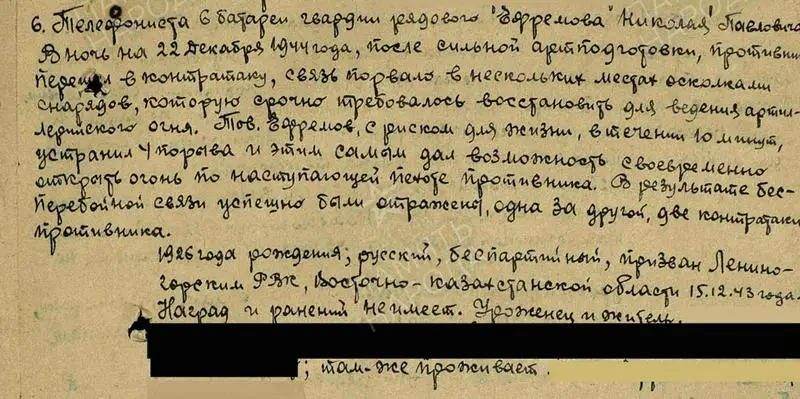 6. Телефониста 6 батареи гвардии рядового "Ефремова" Николая Павловича
В ночь на 22 декабря 1944 года, после сильной артподготовки, противник
перешел в контратаку, связь порвало в нескольких местах осколками
снарядов, которую срочно требовалось восстановить для ведения артил-
лерийского огня. Тов. Ефремов, с риском для жизни, в течении 10 минут,
устранил 4 порыва и этим самым дал возможность своевременно
открыть огонь по наступающей пехоте противника. В результате бес-
перебойной связи успешно были отражены, одна за другой, две контратаки
противника.
1926 года рождения; русский, беспартийный, призван Ленино-
горским РВК, Восточно-Казахстанской области 15.12.43 года.
Наград и ранений не имеет. Уроженец и житель.
; там-же проживает.